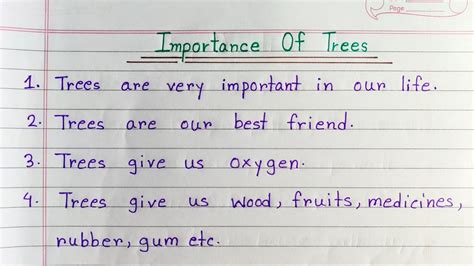 Page
Importance Of Trees
1. Trees are very important in our life.
2. Trees are our best friend.
3. Trees give us oxygen.
4. Trees give us wood, fruits, medicines,
rubber, gum etc.